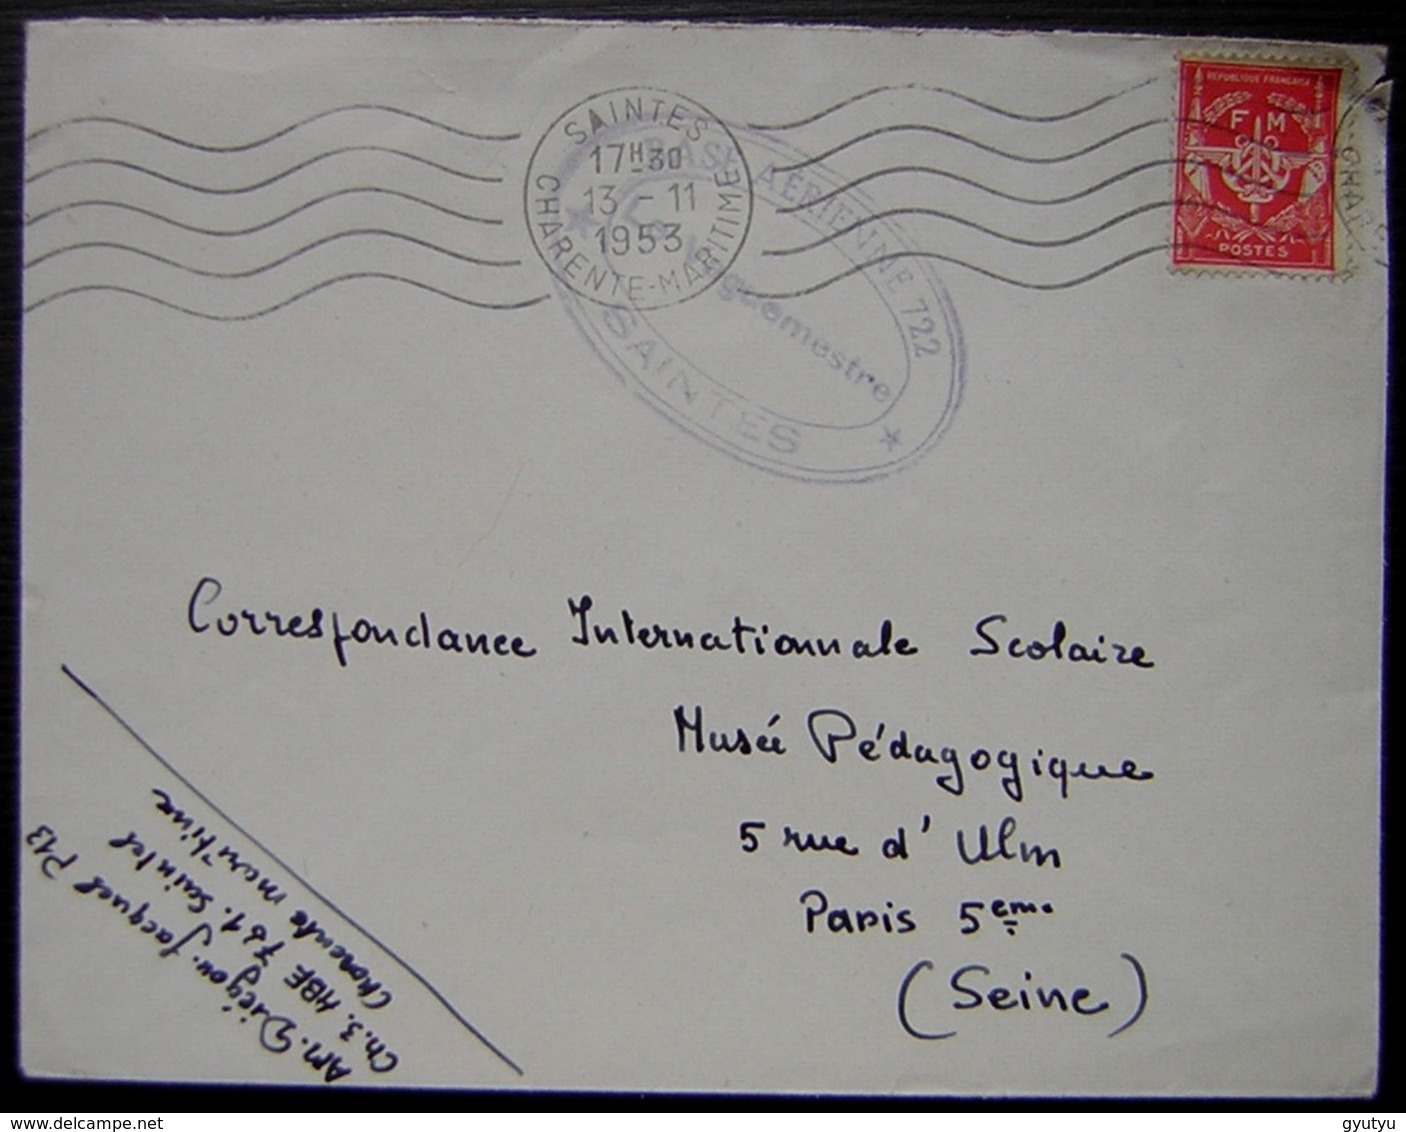 SAINTES
17H30
13 - 11
1953
CHARENTE-MARITIME
BASE AÉRIENNE 722
guemestre
SAINTES
REPUBLIQUE FRANÇAISE
F M
POSTES
CHAR
Correspondance Internationnale Scolaire
Musée Pédagogique
5 rue d'Ulm
Paris 5eme.
(Seine)
AM. Diégou. Jacques P43
Ch. 3. HBE 761. Saintes
Charente maritime
gyutyu